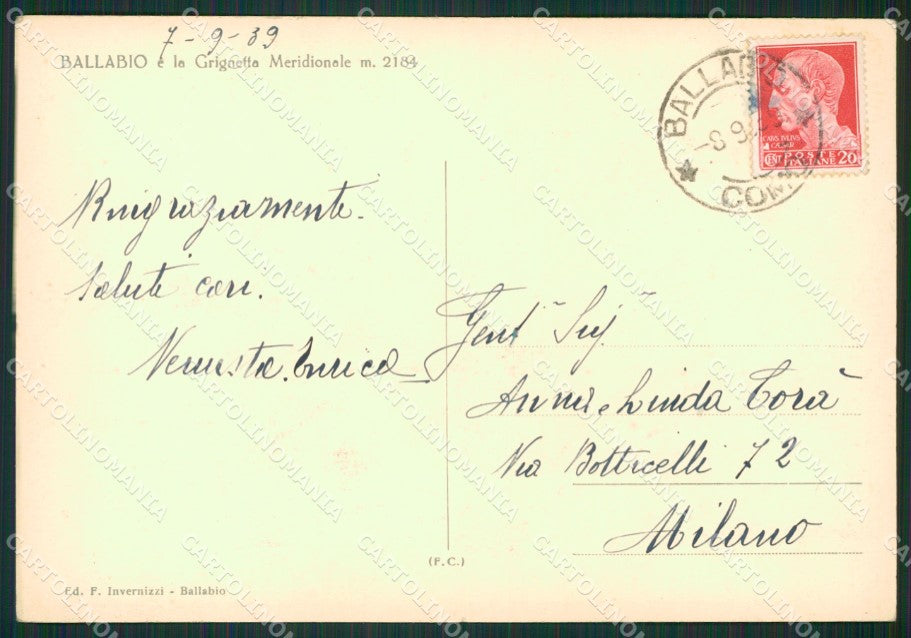 7-9-39
BALLABIO e la Grignetta Meridionale m. 2184
BALLABIO
COMO
CAIVS IVLIVS
CAESAR
CENT. POSTE ITALIANE 20
Ringraziamenti.
Saluti cari.
Venusta. Enrica
Gent Sig.
Anna e Linda Corà
Via Botticelli 72
Milano
(F.C.)
Ed. F. Invernizzi - Ballabio
CARTOLINOMANIA